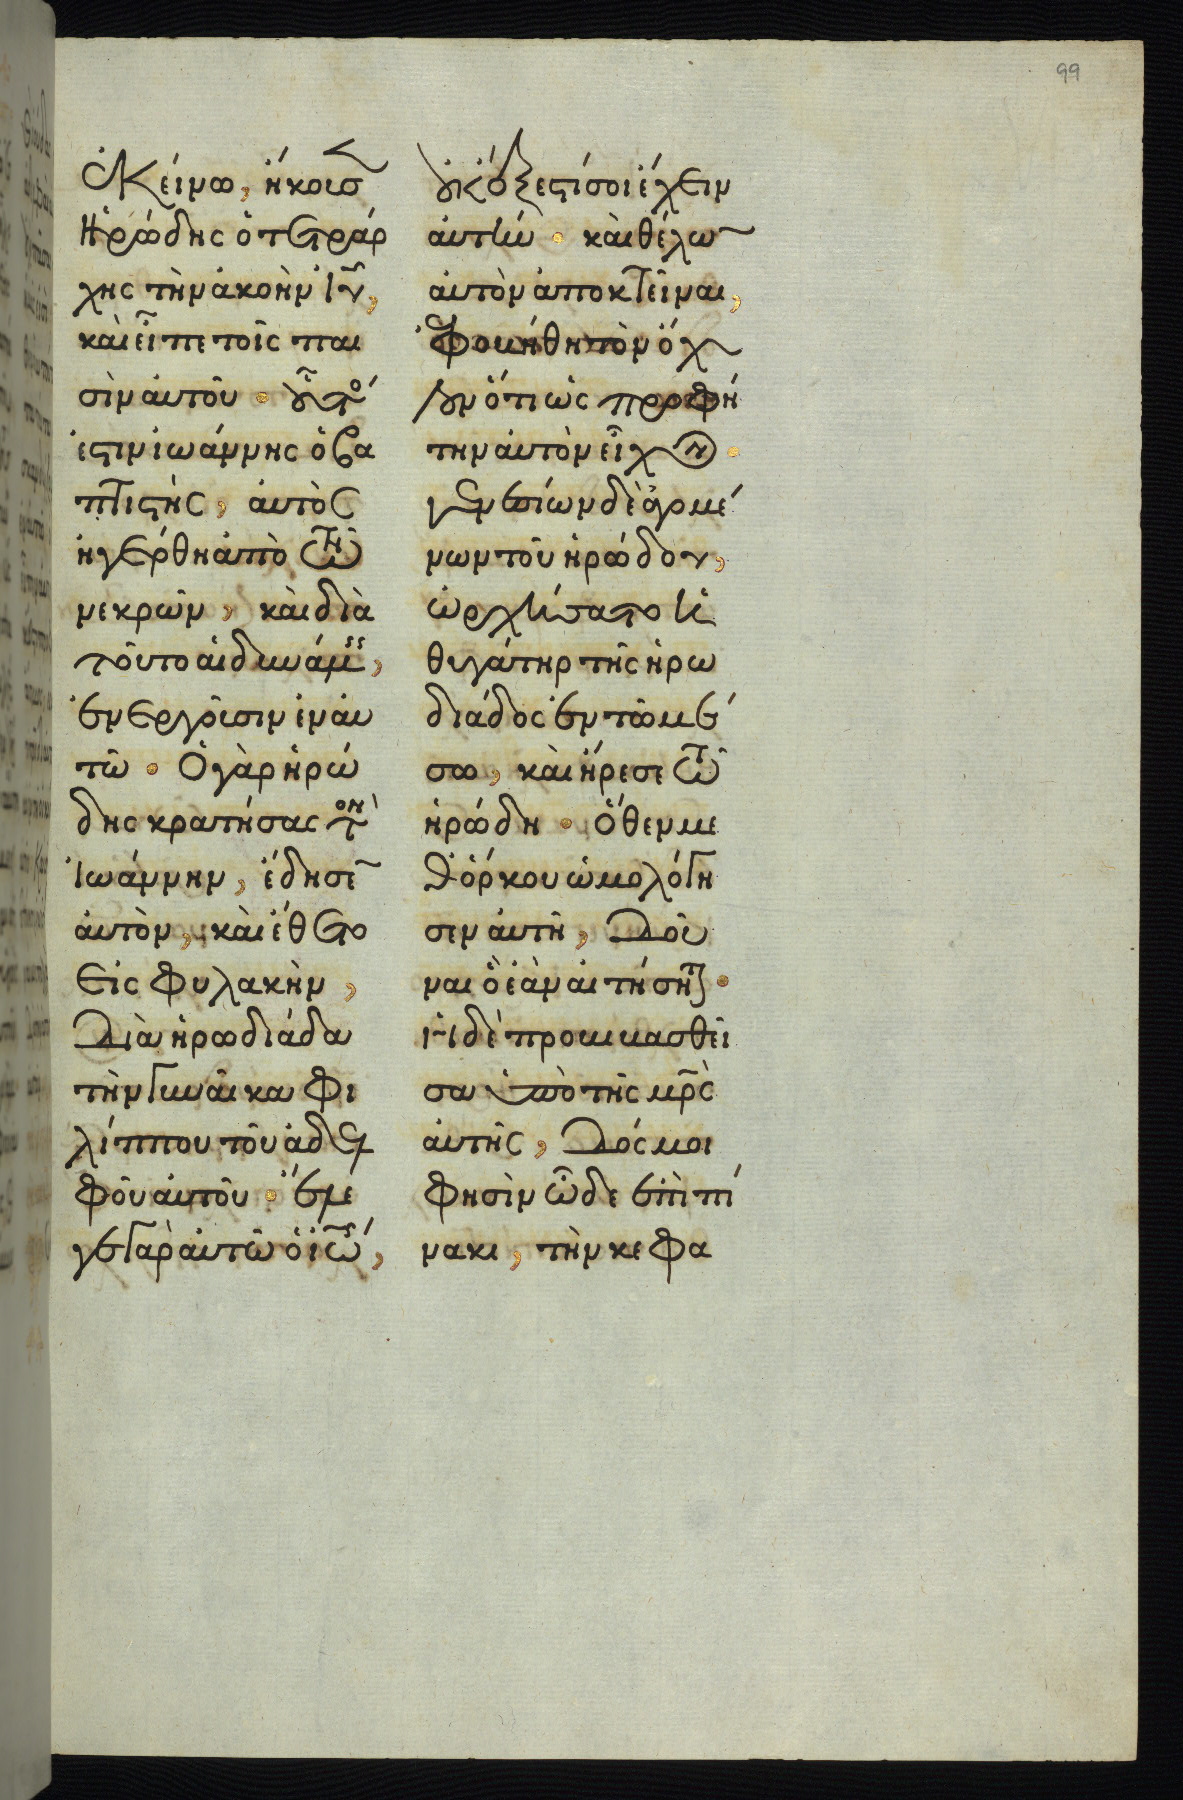 99
ἐκείνω, ἤκουσ
Ἡρώδης ὁ τετράρ
χης τὴν ἀκοὴν ἰυ,
καὶ εἶπε τοῖς παι
σὶν αὐτοῦ · οὗτό
ἐστιν ἰωάννης ὁ βα
πτιστὴς, αὐτὸς
ἠγέρθη ἀπὸ τῶν
νεκρῶν, καὶ διὰ
τοῦτο αἱ δυνάμεις,
ἐνεργοῦσιν ἐν αὐ
τῶ · Ὁ γὰρ ἡρώ
δης κρατήσας τὸν
Ἰωάννην, ἔδησε
αὐτὸν, καὶ ἔθετο
εἰς φυλακὴν,
Διὰ ἡρωδιάδα
τὴν γυναῖκα φι
λίππου τοῦ ἀδελ
φοῦ αὐτοῦ · ἔλε
γε γὰρ αὐτῶ ὁ ἰω,
οὐκ ἔξεστί σοι ἔχειν
αὐτήν · καὶ θέλω
αὐτὸν ἀποκτεῖναι,
ἐφοβήθη τὸν ὄχ
λον ὅτι ὡς προφή
την αὐτὸν εἶχον ·
γενεσίων δὲ ἀγομέ
νων τοῦ ἡρώδου,
ὠρχήσατο ἡ
θυγάτηρ τῆς ἡρω
διάδος ἐν τῶ μέ
σω, καὶ ἤρεσε τῶ
ἡρώδη · Ὅθεν με
θ ὅρκου ὡμολόγη
σεν αὐτῆ, Δοῦ
ναι ὃ ἐὰν αἰτήσηται ·
Ἡ δὲ προβιβασθεῖ
σα ὑπὸ τῆς μρς
αὐτῆς, Δός μοι
φησὶν ὧδε ἐπὶ πί
νακι, τὴν κεφα